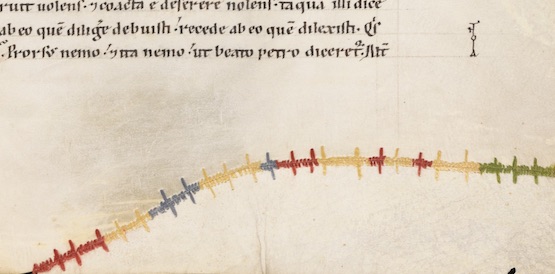 uolens · ⁊ coacta e deserere nolens · taqua illi dice
ab eo quē diligˀe debuisti · recede ab eo quē dilexisti · Qͥs
· Prorsꝰ nemo · ⁊ ita nemo · ut beato petro diceret ·